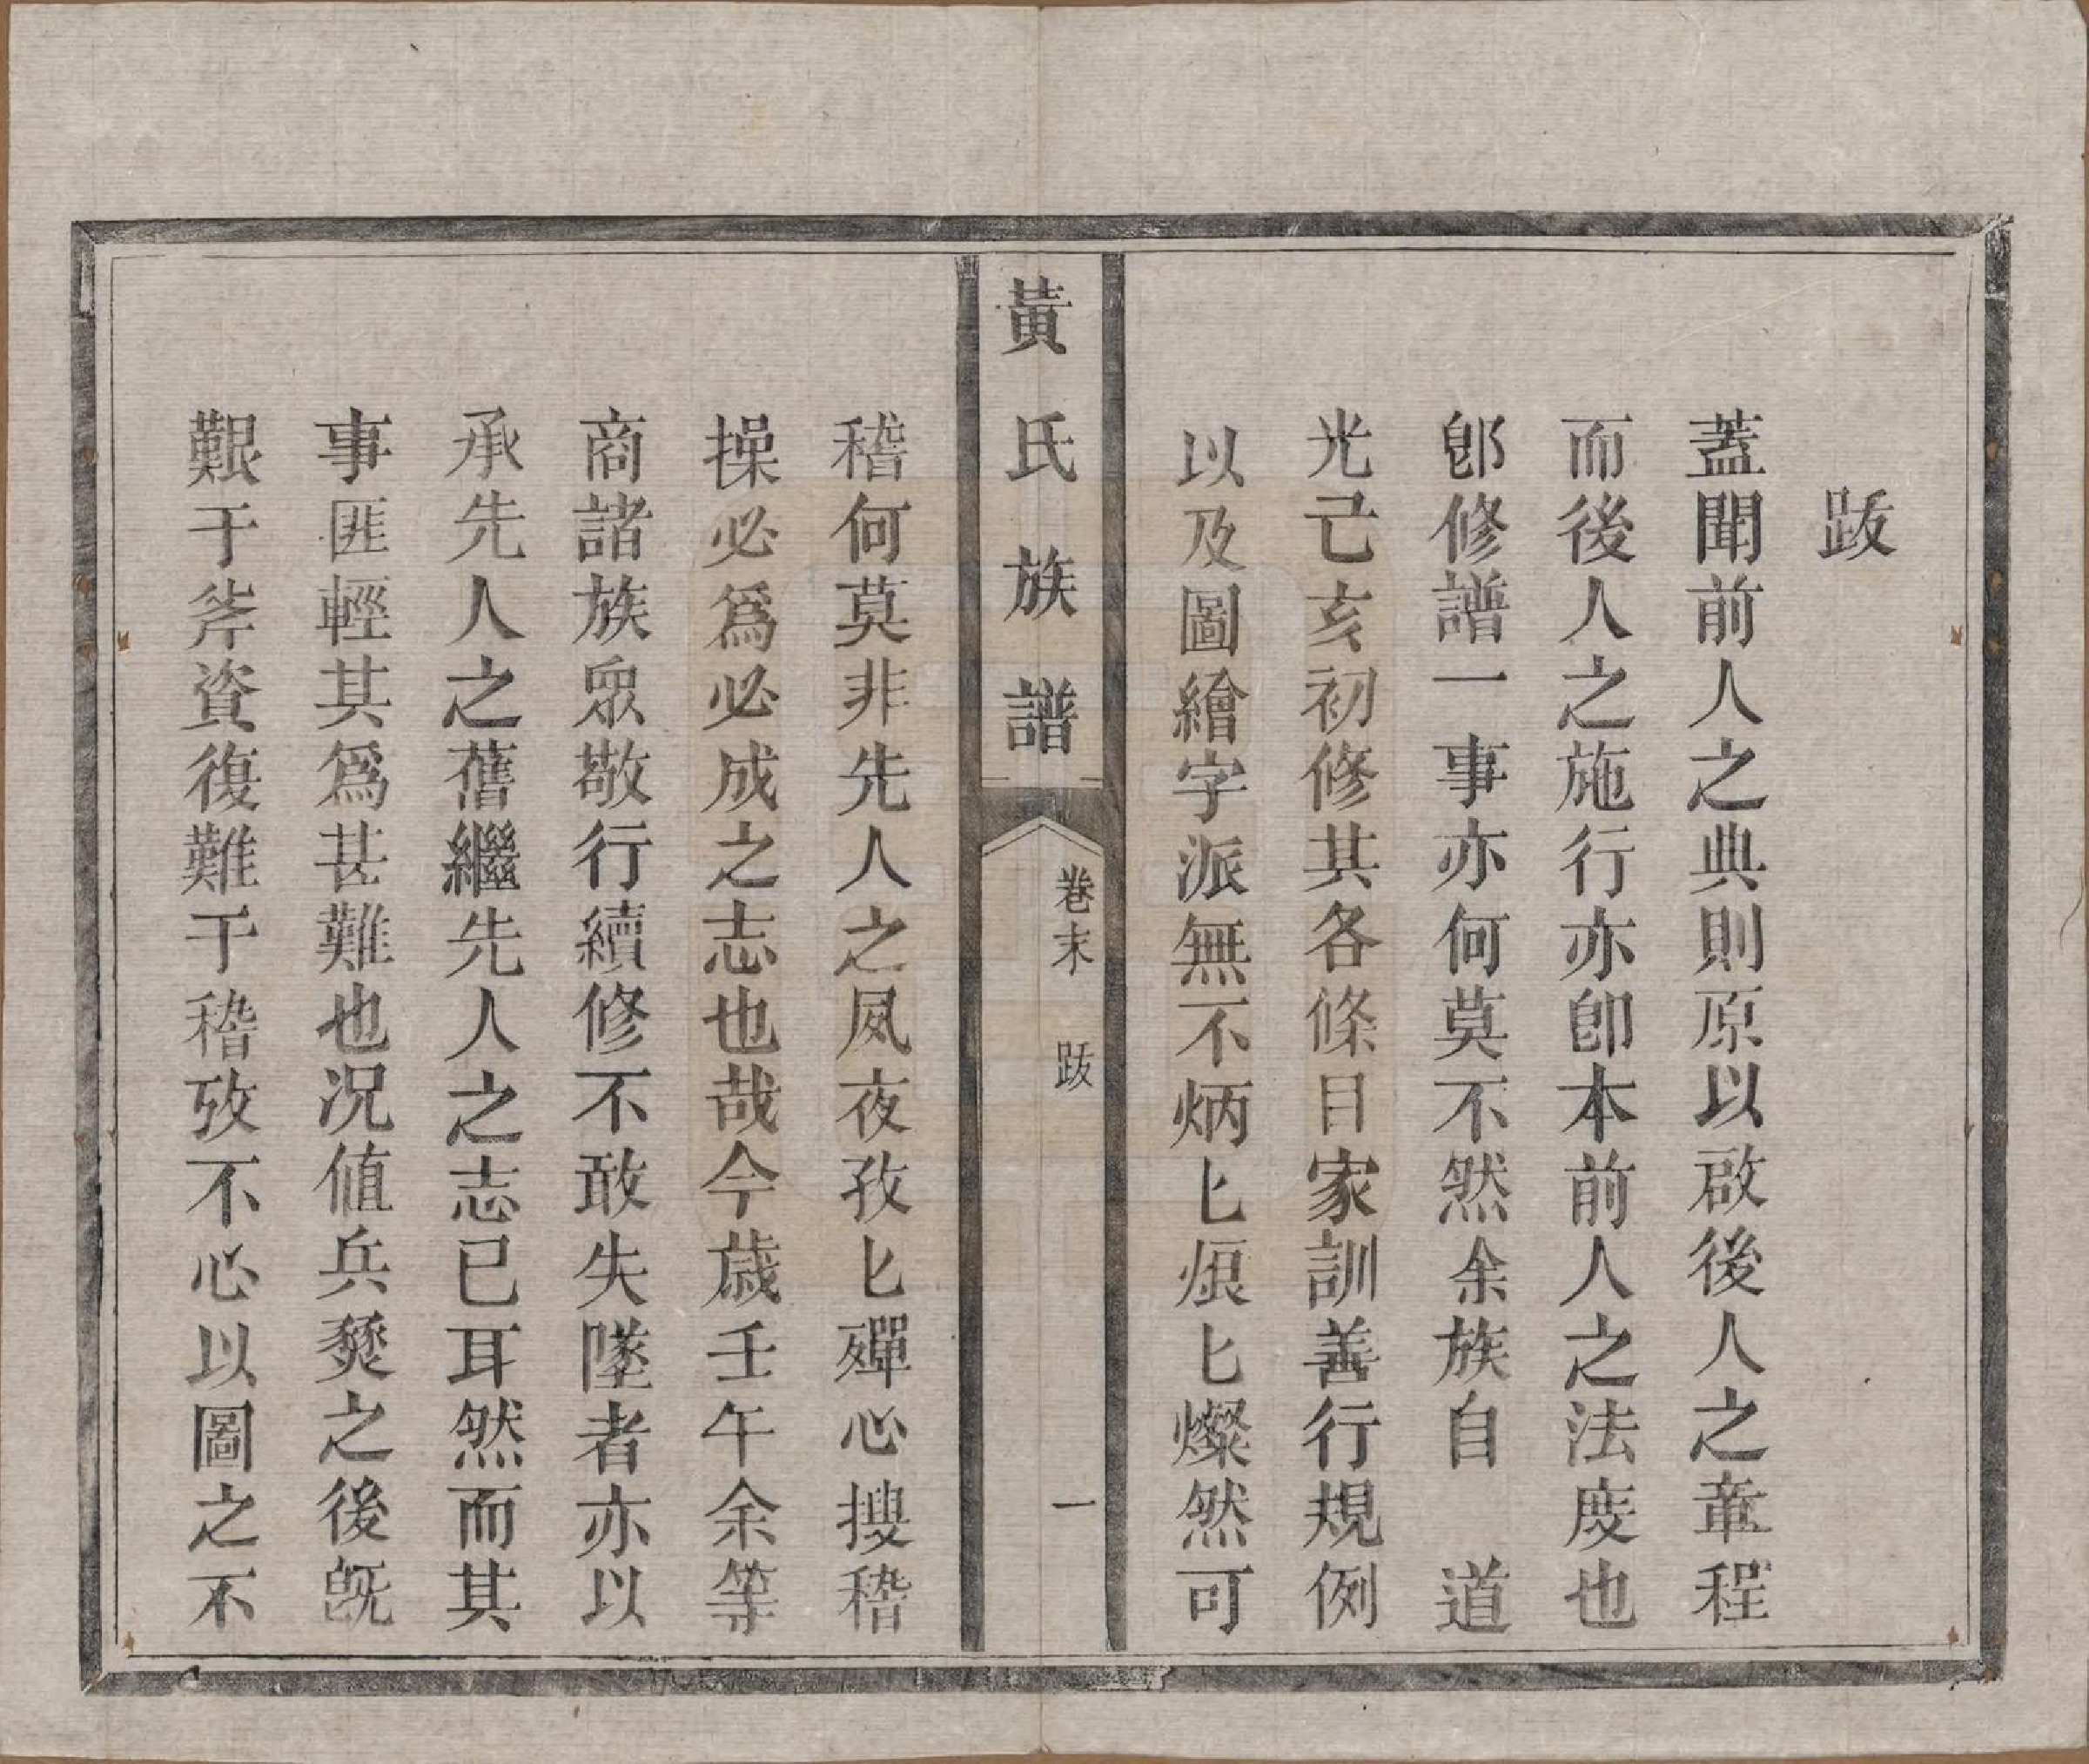 跋
蓋聞前人之典則原以啟後人之章程
而後人之施行亦卽本前人之法度也
卽修譜一事亦何莫不然余族自　道
光己亥初修其各條目家訓善行規例
以及圖繪字派無不炳匕烺匕燦然可
黃氏族譜
卷末　跋
一
稽何莫非先人之夙夜孜匕殫心搜稽
操必爲必成之志也哉今歲壬午余等
商諸族眾敬行續修不敢失墜者亦以
承先人之舊繼先人之志已耳然而其
事匪輕其爲甚難也况値兵燹之後旣
艱于斧資復難于稽攷不心以圖之不